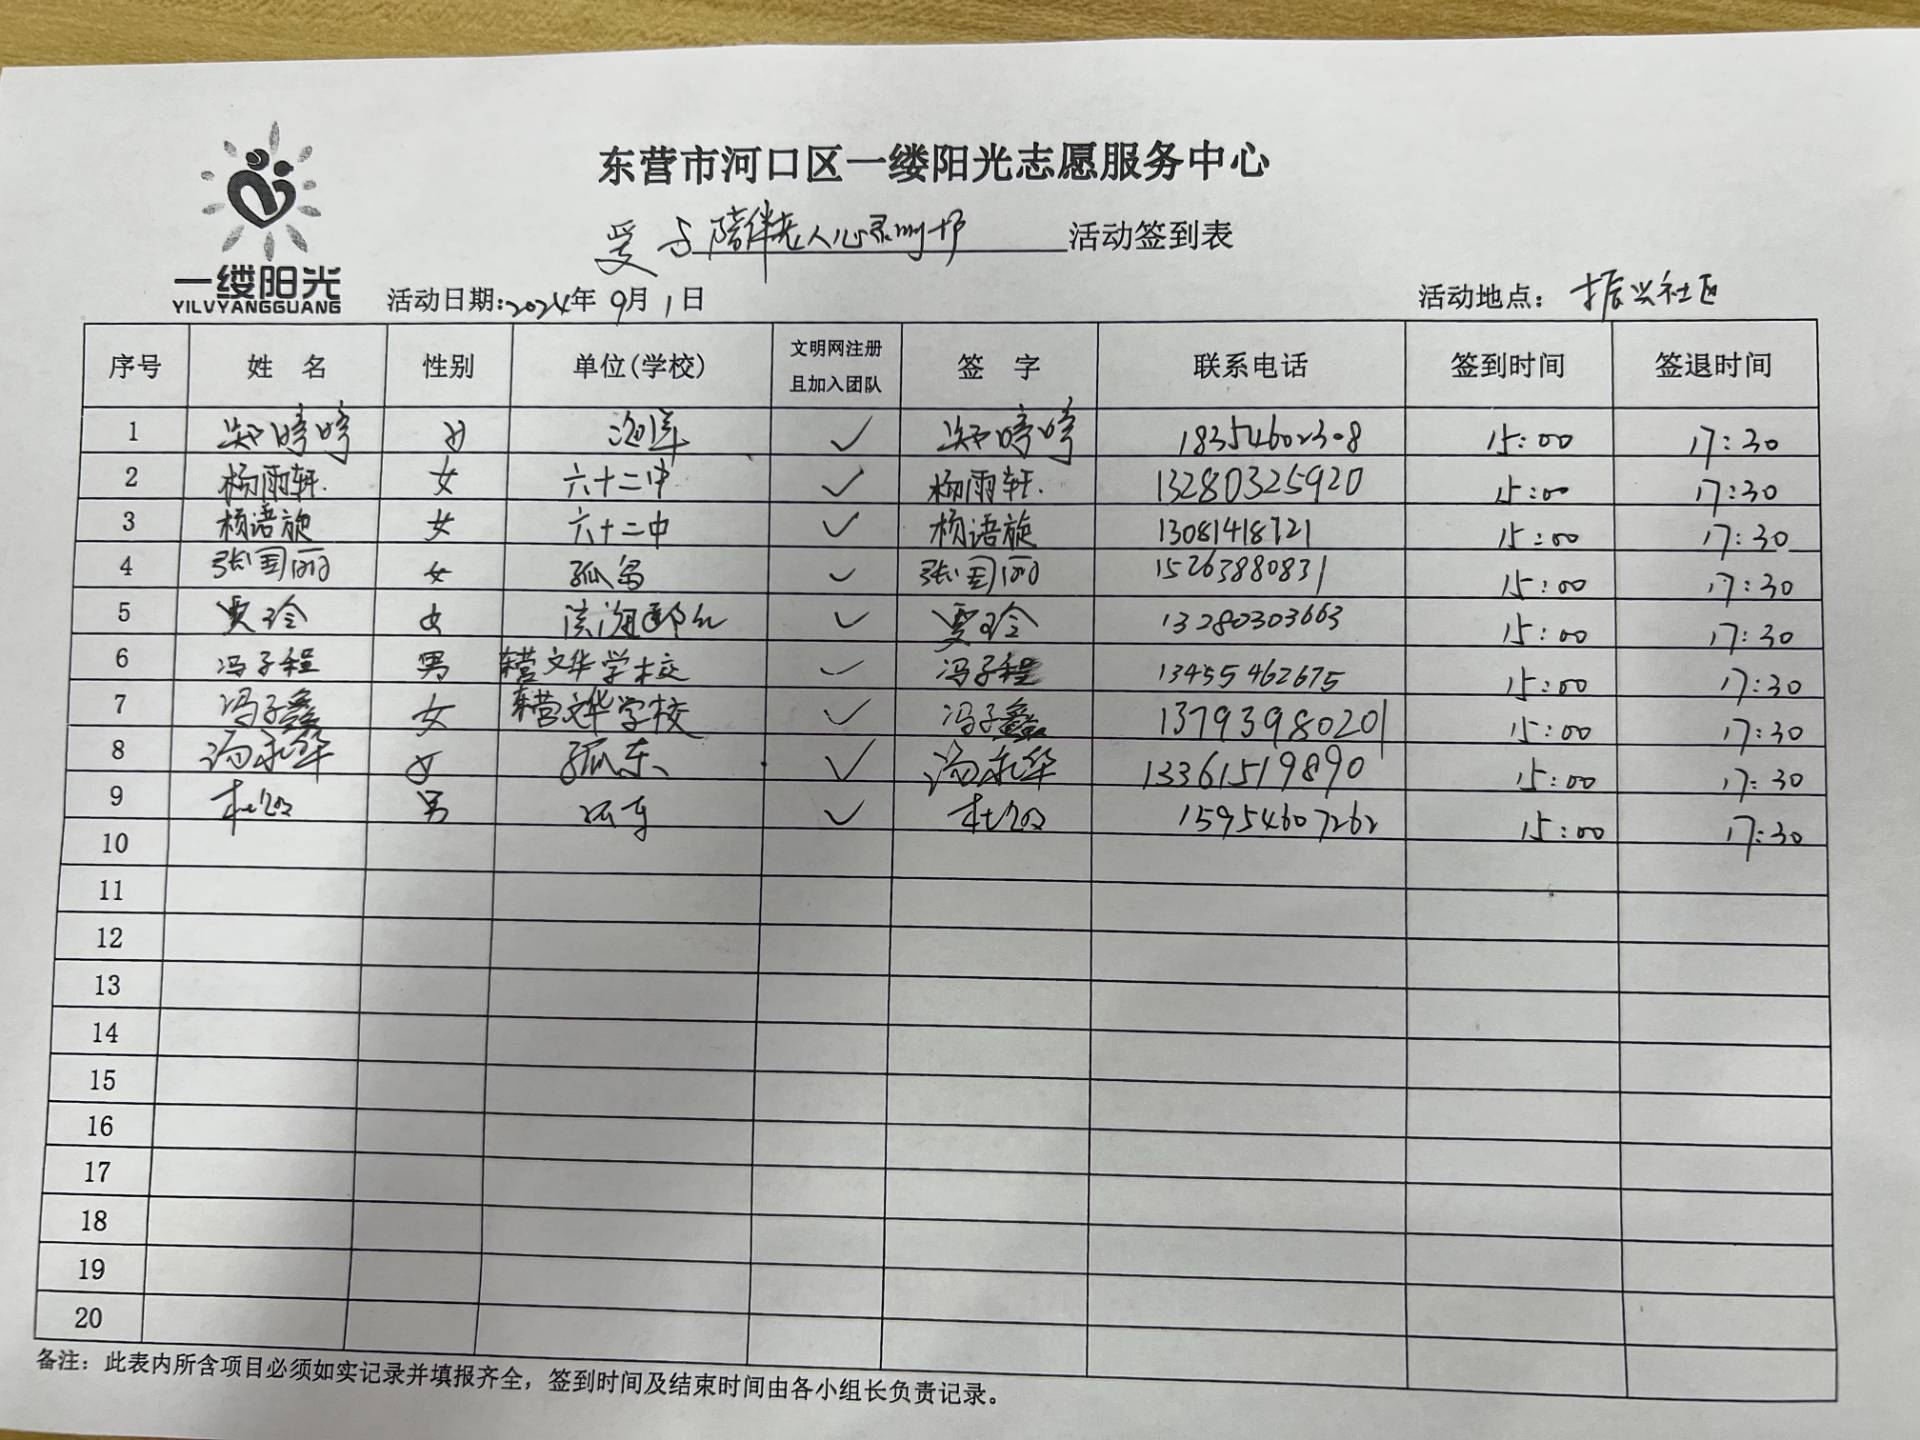 东营市河口区一缕阳光志愿服务中心
爱与陪伴老人心灵呵护 活动签到表
一缕阳光
YILVYANGGUANG
活动日期:2024年 9月 1日 活动地点：振兴社区
序号 姓 名 性别 单位(学校) 文明网注册且加入团队 签 字 联系电话 签到时间 签退时间
1 郑婷婷 女 ✓ 郑婷婷 18354602308 15:00 17:30
2 杨雨轩 女 六十二中 ✓ 杨雨轩 13280325920 15:00 17:30
3 杨语旋 女 六十二中 ✓ 杨语旋 13081418721 15:00 17:30
4 张国丽 女 孤岛 ✓ 张国丽 15263880831 15:00 17:30
5 贾玲 女 滨海 ✓ 贾玲 13280303663 15:00 17:30
6 冯子程 男 东营文华学校 ✓ 冯子程 13455462675 15:00 17:30
7 冯子鑫 女 东营文华学校 ✓ 冯子鑫 13793980201 15:00 17:30
8 汤永华 女 孤东 ✓ 汤永华 13361519890 15:00 17:30
9 男 孤东 ✓ 15954607262 15:00 17:30
10
11
12
13
14
15
16
17
18
19
20
备注：此表内所含项目必须如实记录并填报齐全，签到时间及结束时间由各小组长负责记录。